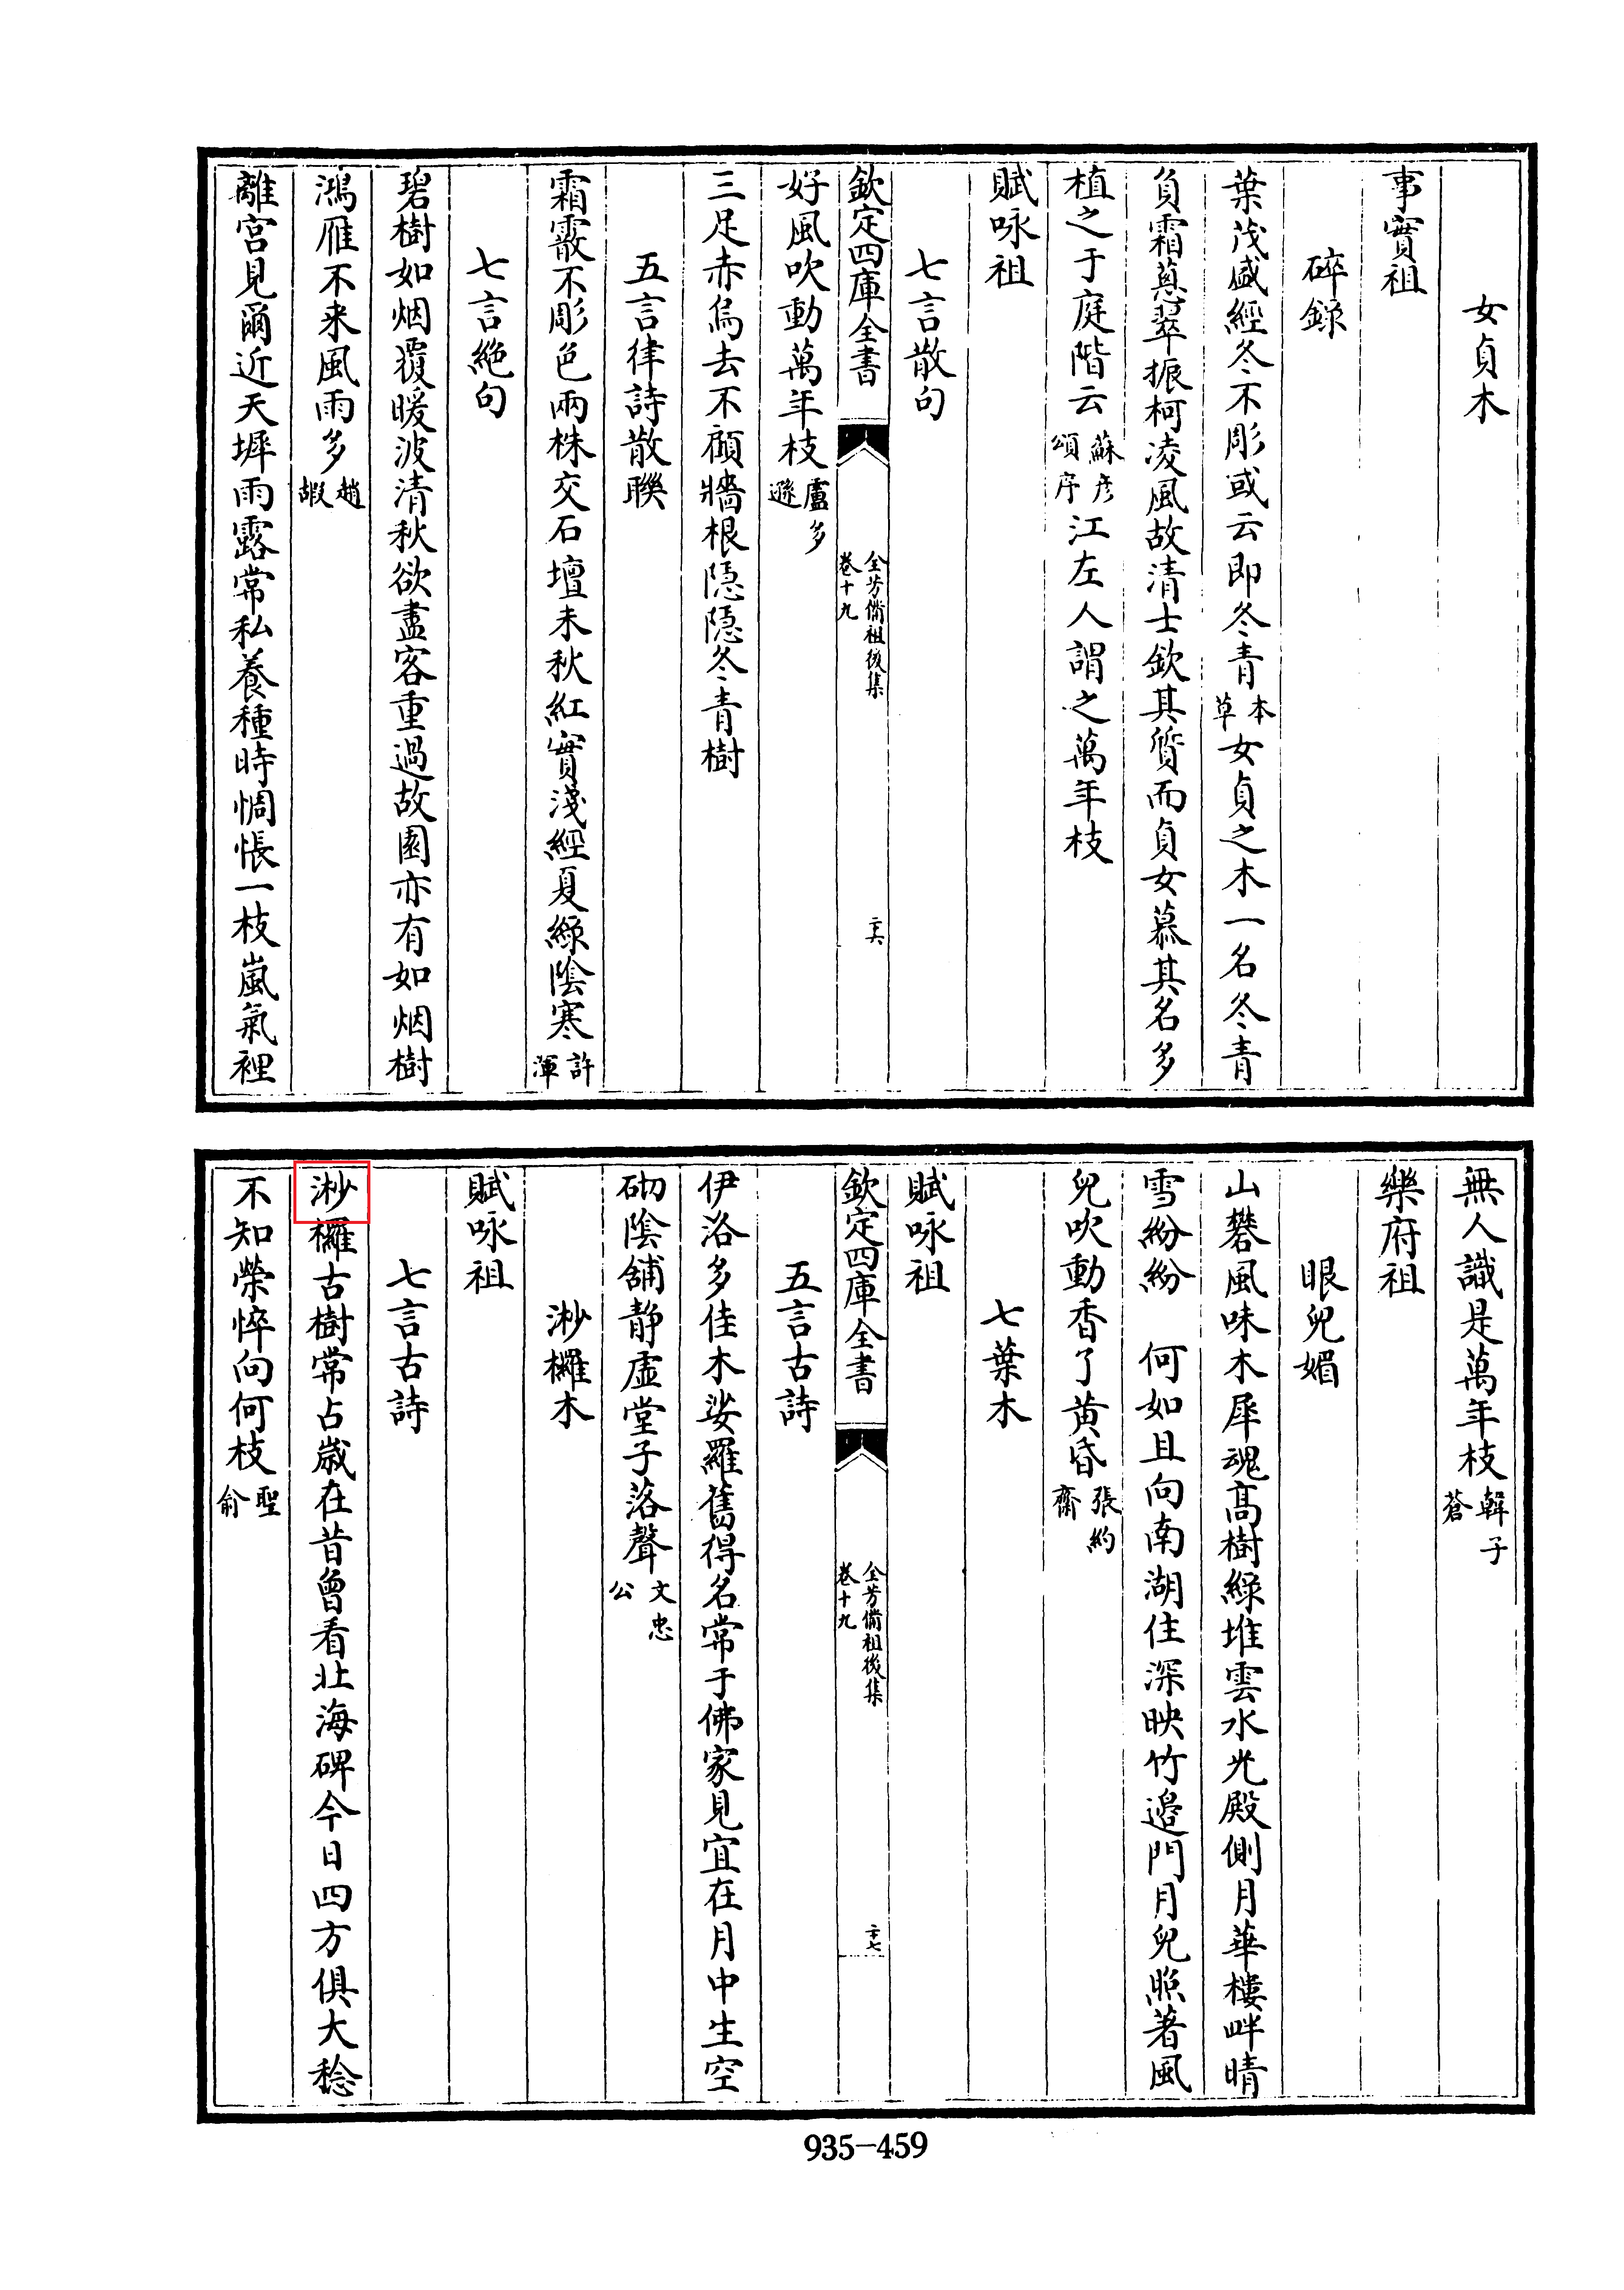 女貞木
事實祖
碎錄
葉茂盛經冬不彫或云即冬青本草女貞之木一名冬青
負霜蔥翠振柯凌風故清士欽其質而貞女慕其名多
植之于庭階云蘇彥頌序江左人謂之萬年枝
賦咏祖
七言散句
欽定四庫全書 全芳備祖後集卷十九 二十六
好風吹動萬年枝盧多遜
三足赤烏去不顧牆根隱隱冬青樹
五言律詩散聨
霜霰不彫色兩株交石壇未秋紅實淺經夏綠陰寒許渾
七言絶句
碧樹如烟覆暖波清秋欲盡客重過故園亦有如烟樹
鴻雁不来風雨多趙嘏
離宮見爾近天墀雨露常私養種時惆悵一枝嵐氣裡
無人識是萬年枝韓子蒼
樂府祖
眼兒媚
山礬風味木犀魂高樹綠堆雲水光殿側月華樓畔晴
雪紛紛 何如且向南湖住深映竹邉門月兒照著風
兒吹動香了黄昏張約齋
七葉木
賦咏祖
欽定四庫全書 全芳備祖後集卷十九 二十七
五言古詩
伊洛多佳木娑羅舊得名常于佛家見宜在月中生空
砌陰舖静虛堂子落聲文忠公
桫欏木
賦咏祖
七言古詩
桫欏古樹常占歲在昔曾看北海碑今日四方俱大稔
不知榮悴向何枝聖俞
935-459